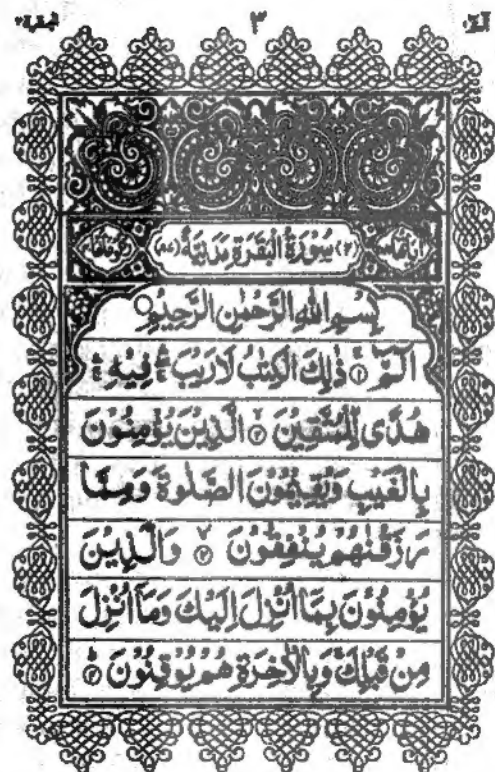 الٓمّٓ ١ ٣ البقرة ٢
اٰیاتھا (٢) سُوْرَةُ الْبَقَرَةِ مَدَنِيَّةٌ (٨٧) رکوعاتھا
بِسْمِ اللهِ الرَّحْمٰنِ الرَّحِيْمِ
الٓمّٓ ۚ ﴿١﴾ ذٰلِكَ الْكِتٰبُ لَا رَيْبَ ۛ فِيْهِ ۛ
هُدًى لِّلْمُتَّقِيْنَ ۙ ﴿٢﴾ الَّذِيْنَ يُؤْمِنُوْنَ
بِالْغَيْبِ وَيُقِيْمُوْنَ الصَّلٰوةَ وَمِمَّا
رَزَقْنٰهُمْ يُنْفِقُوْنَ ۙ ﴿٣﴾ وَالَّذِيْنَ
يُؤْمِنُوْنَ بِمَآ اُنْزِلَ اِلَيْكَ وَمَآ اُنْزِلَ
مِنْ قَبْلِكَ ۚ وَبِالْاٰخِرَةِ هُمْ يُوْقِنُوْنَ ؕ ﴿٤﴾